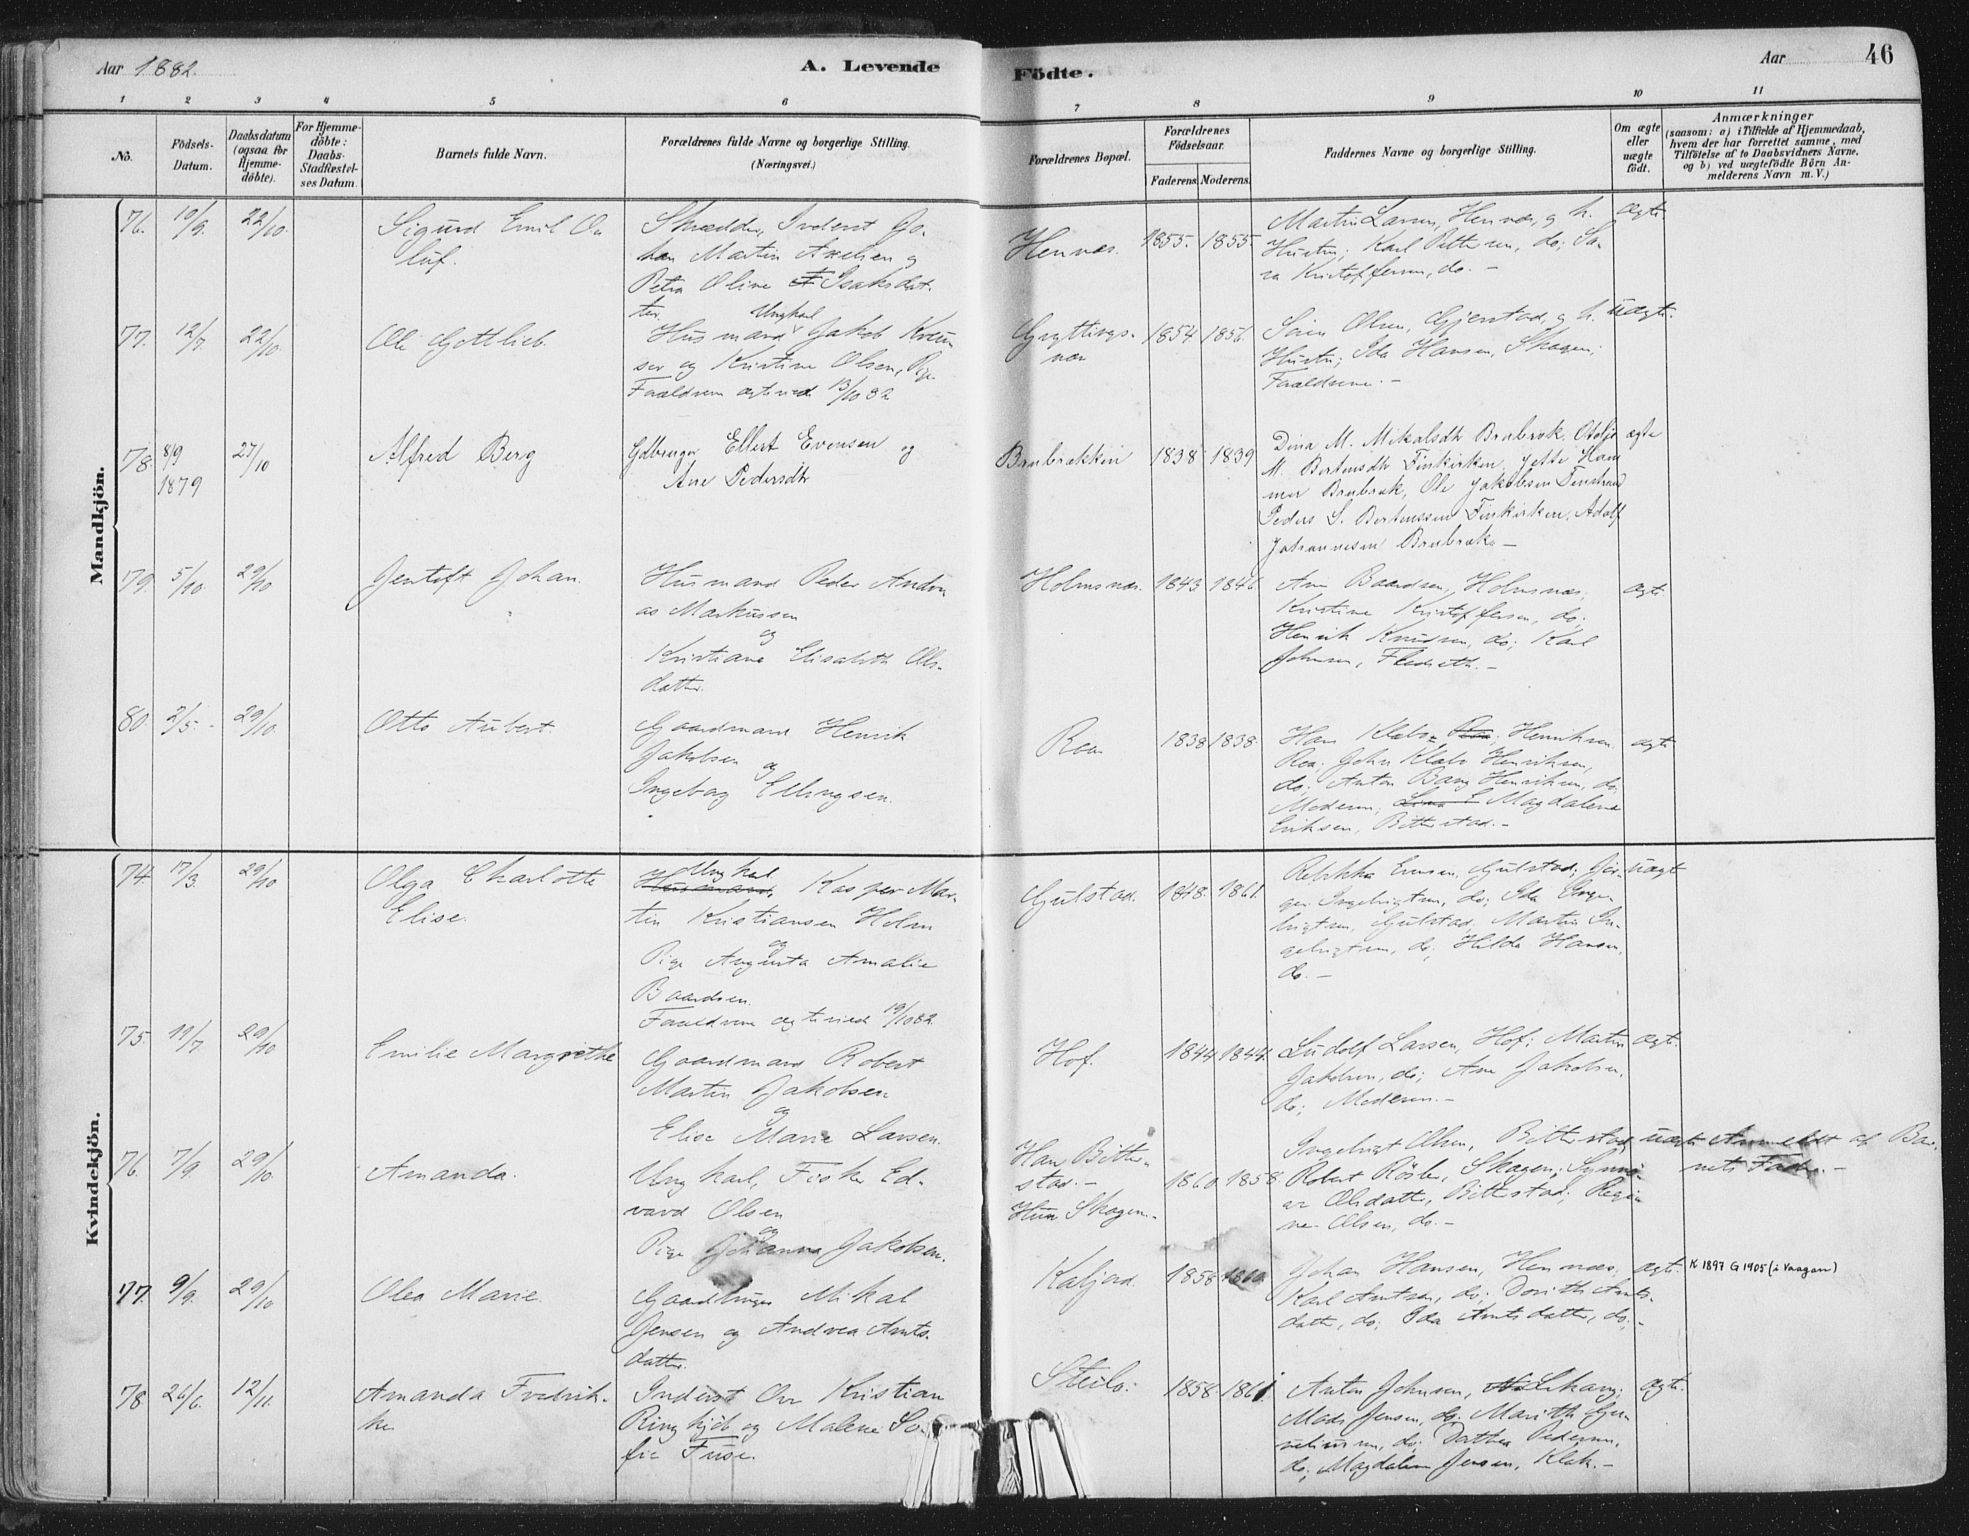 Aar 1882.
A. Levende
Födte.
Aar
46
1 2 3 4 5 6 7 8 9 10 11
No.
Födsels-
Datum.
Daabsdatum
(ogsaa for
Hjemme-
döbte).
For Hjemme-
döbte:
Daabs-
Stadfæstel-
ses Datum.
Barnets fulde Navn.
Forældrenes fulde Navne og borgerlige Stilling.
(Næringsvei.)
Forældrenes Bopæl.
Forældrenes
Födselsaar.
Faderens. Moderens.
Faddernes Navne og borgerlige Stilling.
Om ægte
eller
uægte
födt.
Anmærkninger
(saasom: a) i Tilfælde af Hjemmedaab,
hvem der har forrettet samme, med
Tilföielse af to Daabsvidners Navne,
og b) ved uægtefödte Börn An-
melderens Navn m. V.)
Mandkjön.
76. 10/9. 22/10.
Sigurd Emil O
luf.
Inderst Jo-
han Martin Axelsen og
Petra Oline Isaksdat-
ter.
Hennæs. 1855. 1855.
Martin Larsen, Hennæs, og h.
Hustru; Karl Pettersen, do; Sa-
ra Kristoffersen, do. –
ægte
77. 12/7. 22/10.
Ole Gottlieb.
Ungkarl
Husmand Jakob
og Kristine Olsen, Pige
Forældrene ægteviede 13/10 82
Gryttings-
nær
1854 1856.
Sören Olsen, Gjerstad, og h.
Hustru; Ida Hansen, Skagen;
Forældrene. –
uægte.
78. 8/9
1879
27/10
Alfred Berg
Gdbruger Ellert Evensen og
Ane Pedersdtr
Brubrækken 1838 1839
Dina M. Mikalsdtr Brubræk,
M. Bertensdtr Finkirken, Jette Ham
mer Brubræk, Ole Jakobsen
Peders S. Bertenssen Finkirken, Adolf
Johannesen Brubræk. –
ægte
79. 5/10. 29/10
Jentoft Johan.
Husmand Peder Andre
as Markussen
og
Kristiane Elisabeth Ols-
datter.
Holmsnæs. 1843 1846
Ane Baardsen, Holmsnæs;
Kristine Kristoffersen, do;
Henrik Knudsen, do; Karl
Johnsen, –
ægte.
80. 2/5. 29/10.
Otto Aubert.
Gaardmand Henrik
Jakobsen og
Ingeborg Ellingsen.
Roa 1838 1838.
Hans Klæbo Henriksen
Roa. John Klæbo Henriksen,
do; Anton Bang Henriksen, do;
Moderen; Magdalena
Eriksen, Bitterstad. –
ægte
Kvindekjön.
74. 17/3. 29/10
Olga Charlotte
Elise.
Ungkarl
Husmand, Kasper Mar-
tin Kristiansen Holm
og
Pige Augusta Amalie
Baardsen.
Forældrene ægteviede 19/10 82.
Gulstad. 1848. 1861.
Rebekka Gulstad; Jör-
gen Ingebrigtsen, do; Ida Inge-
brigtsen, Gulstad, Martin In-
gebrigtsen, do; Hilda Hansen,
do. –
uægte
75. 19/7. 29/10
Emilie Margrethe
Gaardmand Robert
Martin Jakobsen
og
Elise Marie Larsen.
Hof. 1844 1844.
Ludolf Larsen, Hof; Martin
Jakobsen, do; Ane Jakobsen,
do; Moderen. –
ægte.
76. 7/9. 29/10.
Amanda.
Ungkarl, Fisker Ed-
vard Olsen
og
Pige Johanna Jakobsen.
Han Bitter-
stad. –
Hun Skagen. –
1860. 1858.
Ingebrigt Olsen, Bitterstad,
Robert Skagen; Synnö-
ve Olsdatter, Bitterstad; Regi
ne Olsen, do. –
uægte
Anmeldt af Bar-
nets Fader. –
77. 9/9. 29/10
Olea Marie.
Gaardbruger Mikal
Jensen og Andrea Amts-
datter.
Kaljord. 1858 1860.
Johan Hansen, Hennæs,
Karl Amtsen, do; Dorith Amts-
datter, do; Ida Amtsdatter, do; –
ægte.
K 1897 G 1905 (i Vaagan)
78. 26/6. 12/11.
Amanda Fredrik-
ke.
Inderst Kristian
og Malene So-
fie
Steilo. 1858 1861
Anton Johnsen,
Mads Jensen, do. Marith
do; Dorthea Pedersen,
do, Magdalena Jensen, –
ægte.